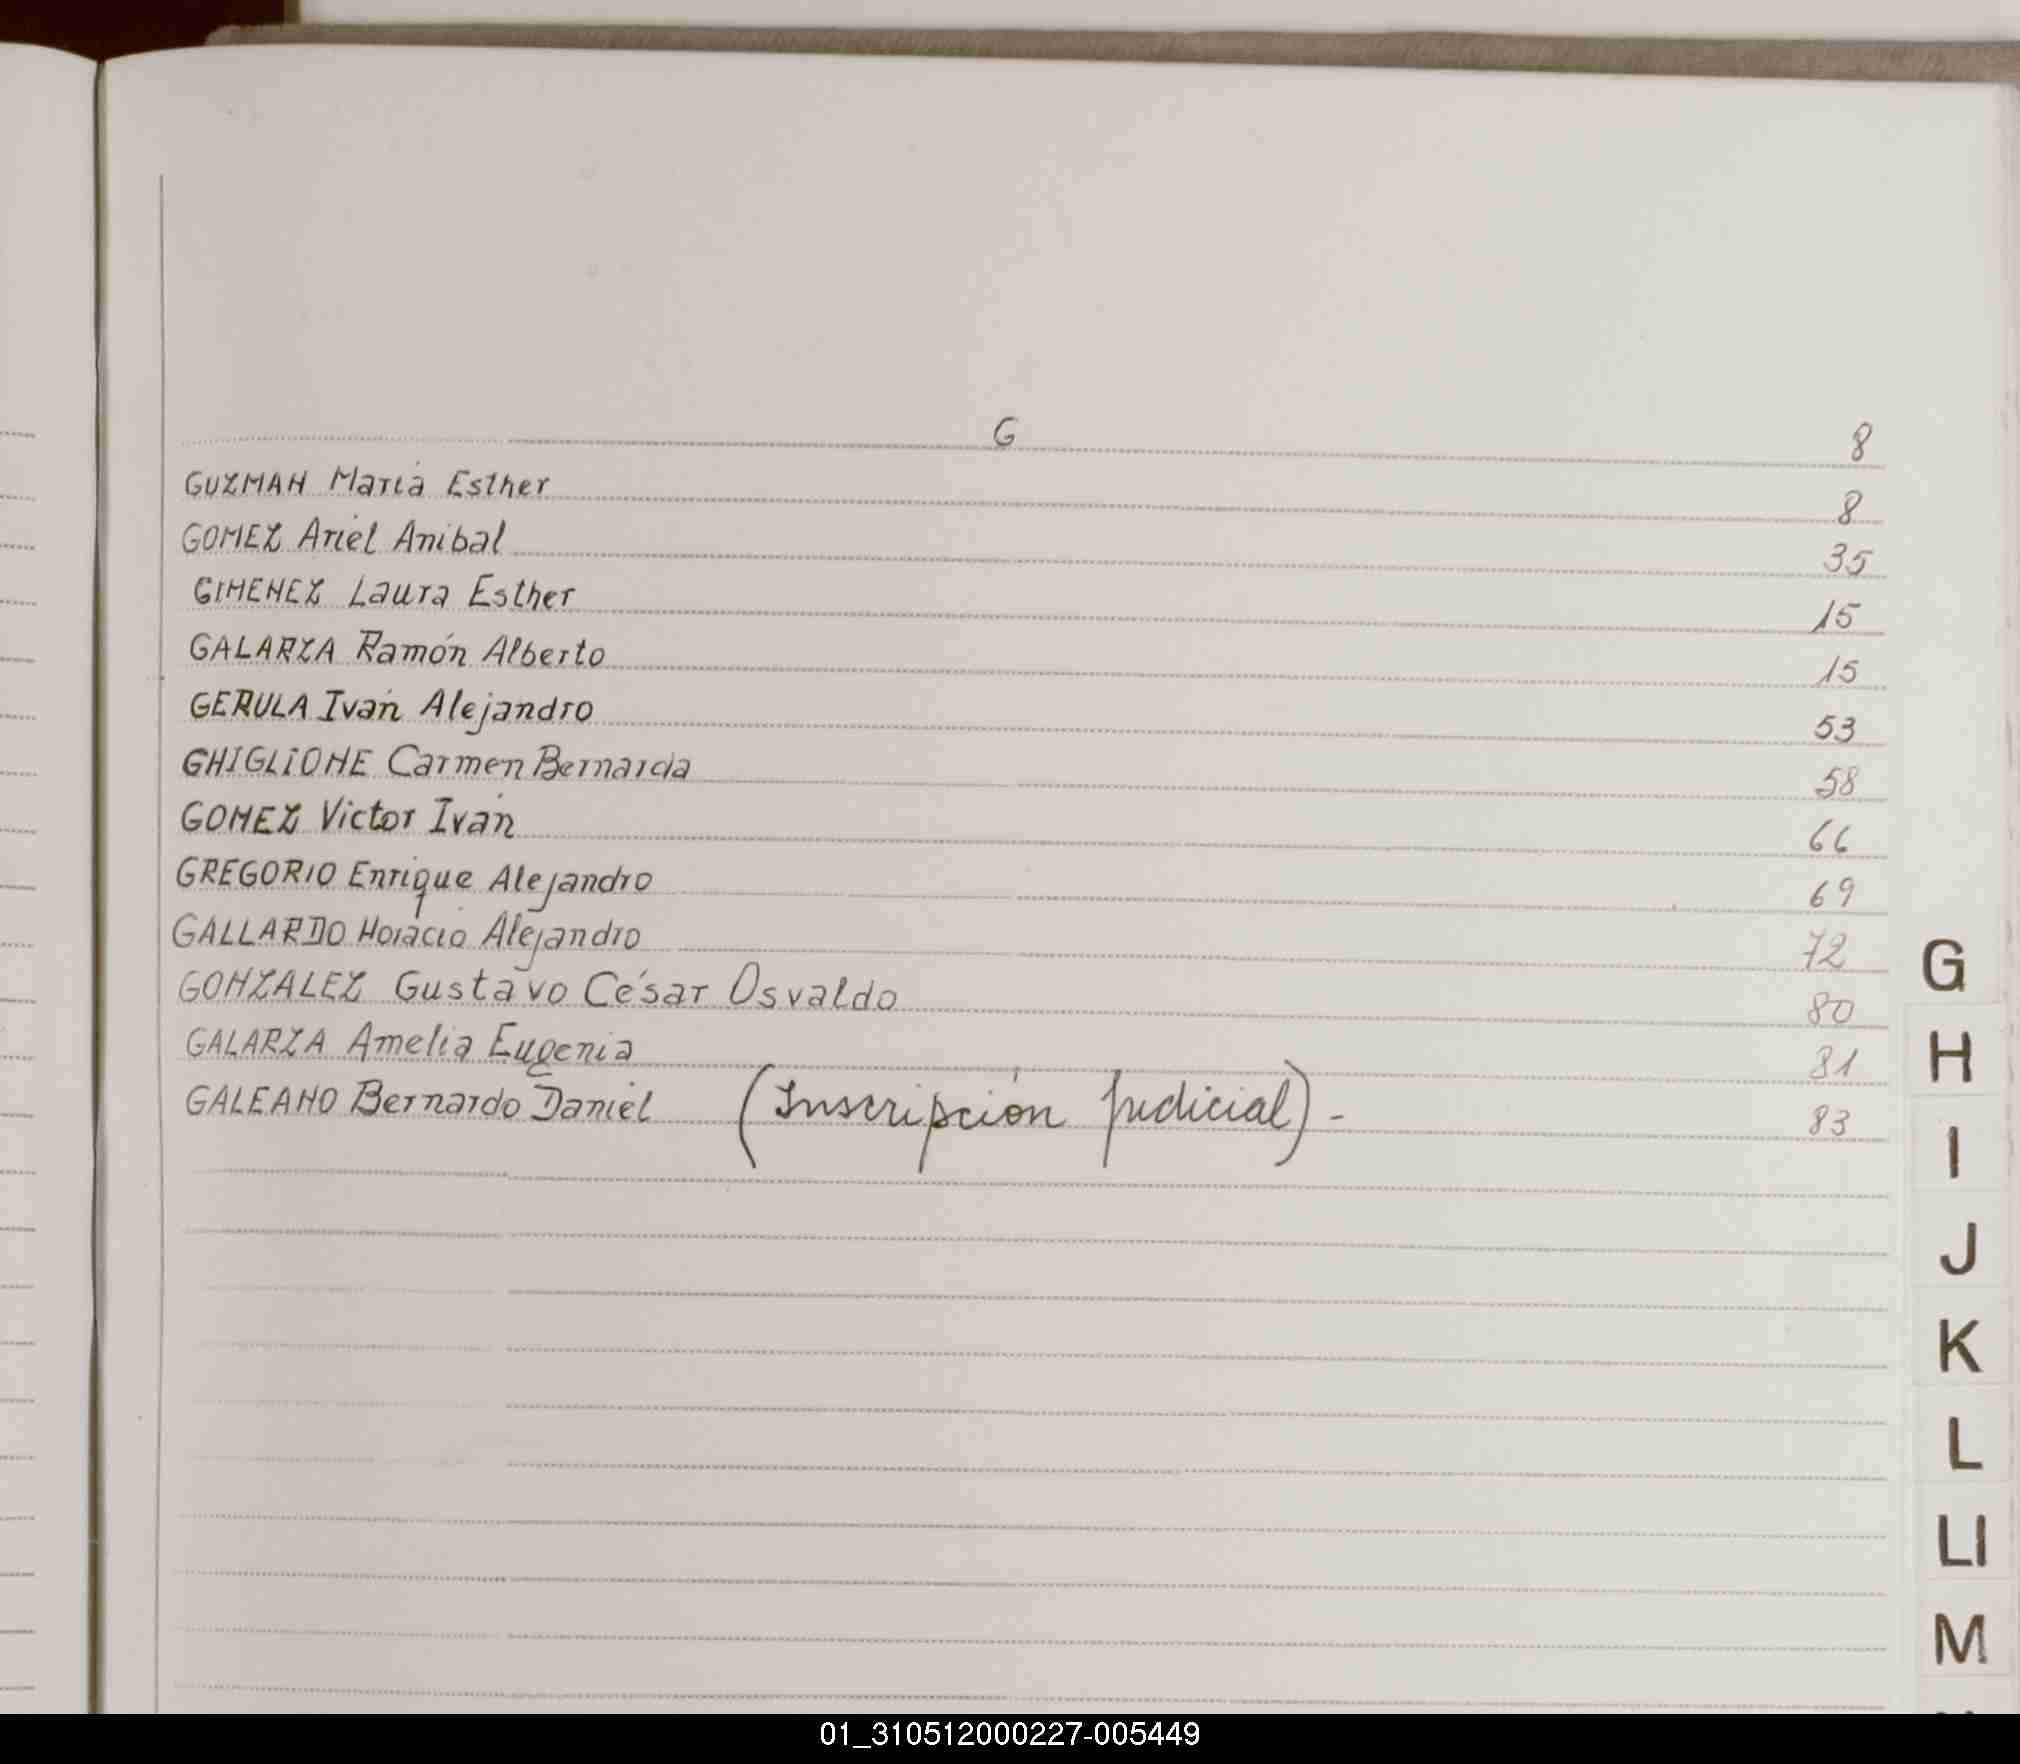 G 8
GUZMAN María Esther 8
GOMEZ Ariel Anibal 35
GIMENEZ Laura Esther 15
GALARZA Ramón Alberto 15
GERULA Iván Alejandro 53
GHIGLIONE Carmen Bernarda 58
GOMEZ Victor Iván 66
GREGORIO Enrique Alejandro 69
GALLARDO Horacio Alejandro 72
GONZALEZ Gustavo César Osvaldo 80
GALARZA Amelia Eugenia 81
GALEANO Bernardo Daniel (Inscripción Judicial)- 83
G
H
I
J
K
L
Ll
M
01_310512000227-005449